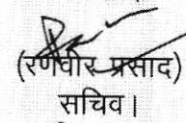 (रणवीर प्रसाद)
सचिव।